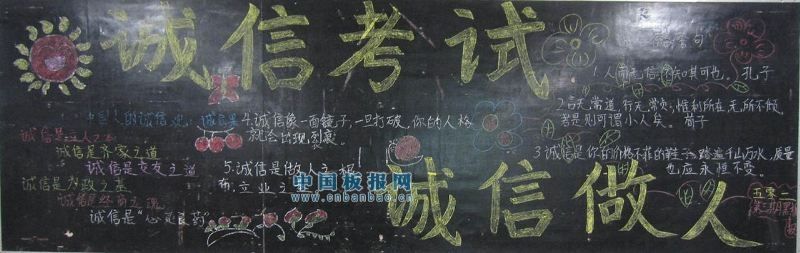 诚信考试
中国人的诚信观:诚信是
诚信是立人之本
诚信是齐家之道
诚信是交友之道
诚信是为政之基
诚信是经商之魂
诚信是“心灵良药”
4.诚信像一面镜子,一旦打破,你的人格
就会出现裂裹。
5.诚信是做人之根
布,立业之
中国板报网
www.cnbanbao.cn
名句
1.人而无信,不知其可也。孔子
2.言无常道,行无常贞,惟利所在,无所不倾,
若是则可谓小人矣。荀子
3.诚信是你价格不菲的鞋子,踏遍千山万水,质量
也应永恒不变。
诚信做人
五零一
第三期